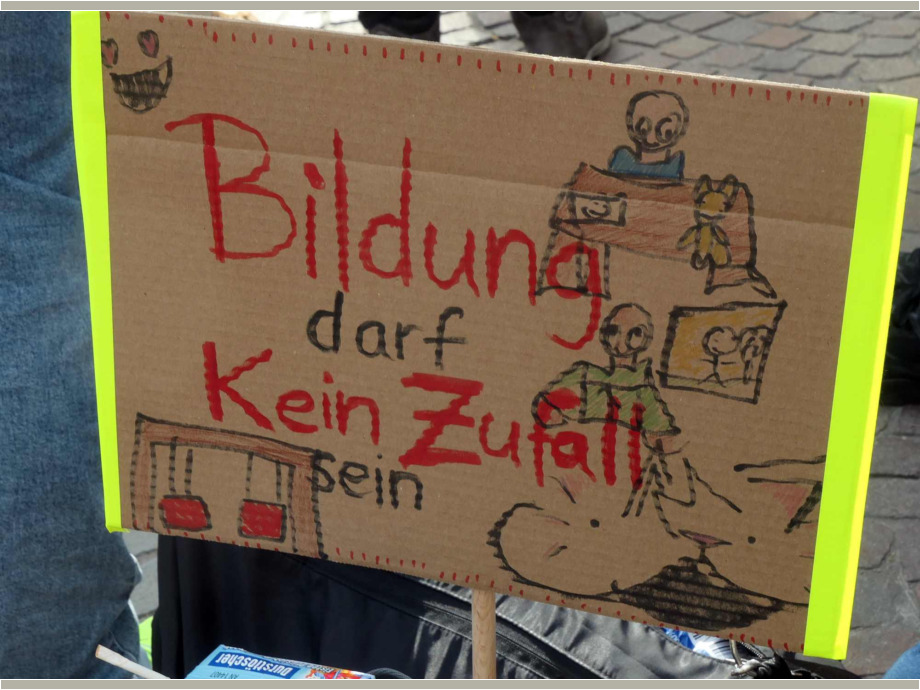 Bildung
darf
Kein Zufall
sein
Durstlöscher